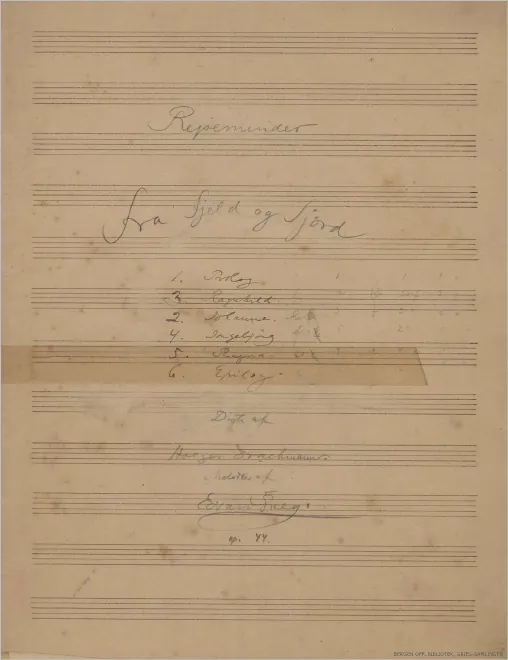 Rejseminder
fra Fjeld og Fjord
1. Prolog
3. Ragnhild.
2. Johanne.
4. Ingebjörg
5. Ragna.
6. Epilog.
Digte af
Holger Drachmann.
af
Edvard Grieg.
op. 44.
BERGEN OFF. BIBLIOTEK, GRIEG-SAMLINGEN